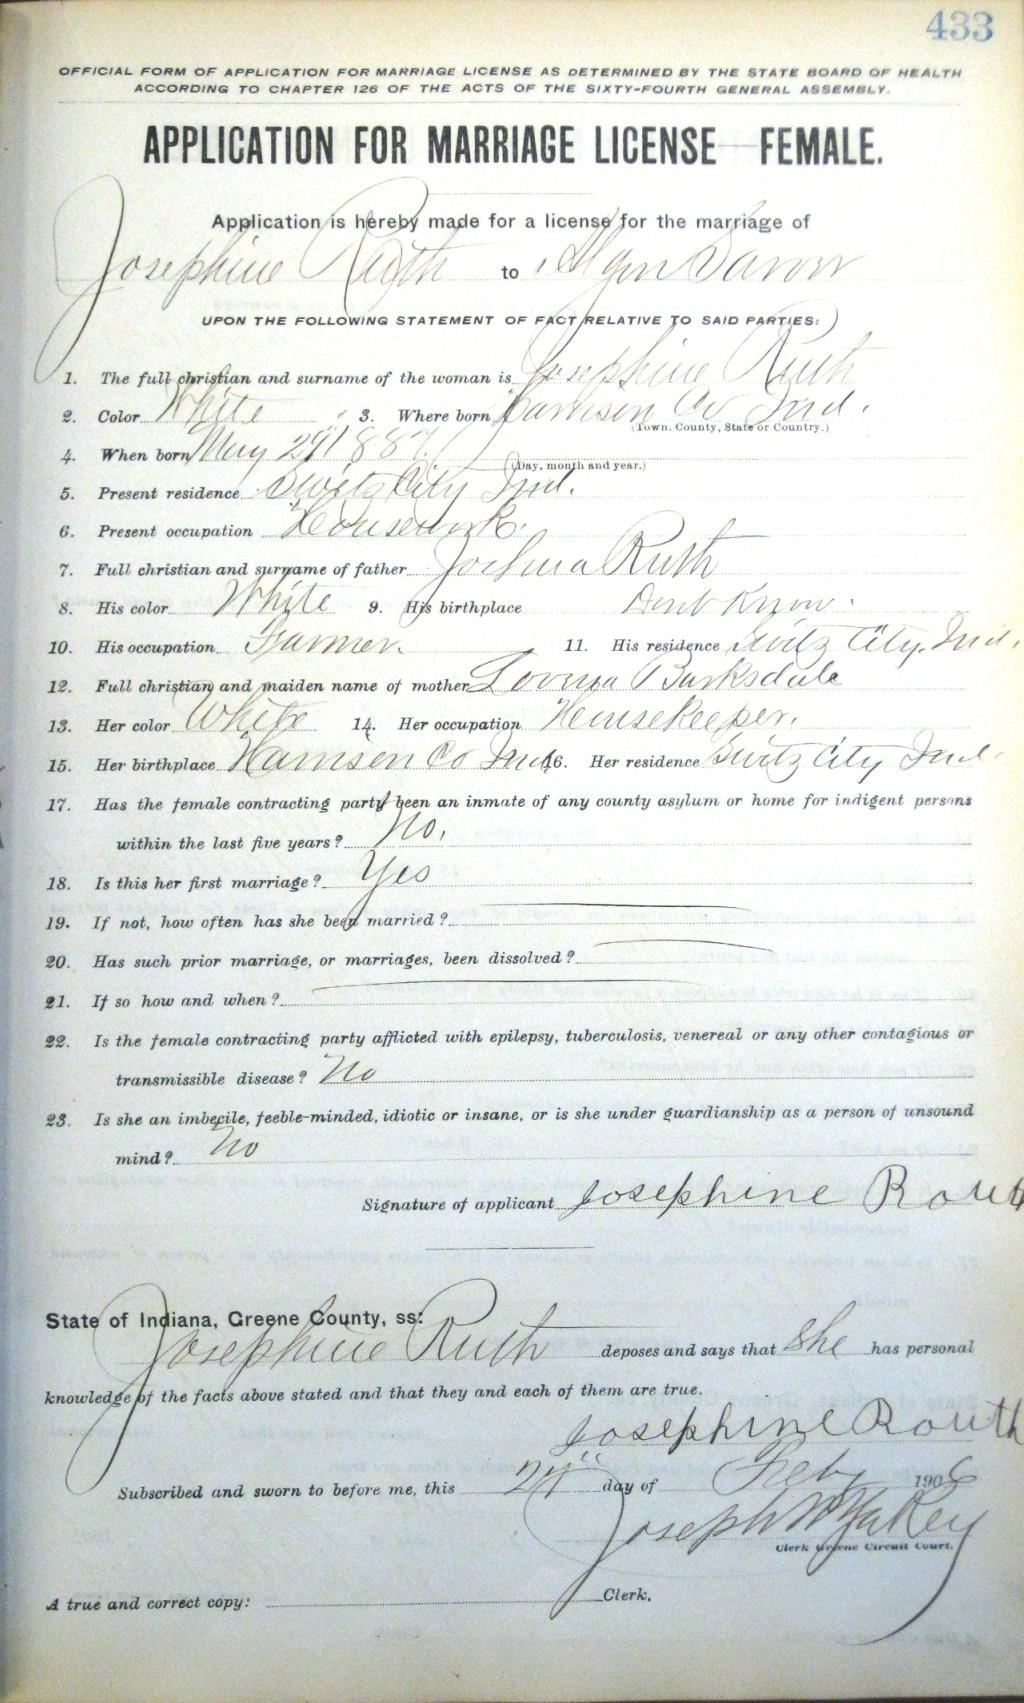 433
OFFICIAL FORM OF APPLICATION FOR MARRIAGE LICENSE AS DETERMINED BY THE STATE BOARD OF HEALTH
ACCORDING TO CHAPTER 126 OF THE ACTS OF THE SIXTY-FOURTH GENERAL ASSEMBLY.
APPLICATION FOR MARRIAGE LICENSE FEMALE.
Application is hereby made for a license for the marriage of
Josephine Ruth to
UPON THE FOLLOWING STATEMENT OF FACT RELATIVE TO SAID PARTIES:
1. The full christian and surname of the woman is Josephine Ruth
2. Color White 3. Where born Harrison Co Ind.
(Town. County, State or Country.)
4. When born May 29 1887
(Day, month and year.)
5. Present residence Switz City Ind.
6. Present occupation Housework.
7. Full christian and surname of father Joshua Ruth
8. His color White 9. His birthplace Dont Know.
10. His occupation Farmer. 11. His residence Switz City. Ind.
12. Full christian and maiden name of mother Barksdale
13. Her color White 14. Her occupation Housekeeper.
15. Her birthplace Harrison Co Ind 16. Her residence Switz City Ind.
17. Has the female contracting party been an inmate of any county asylum or home for indigent persons
within the last five years? No.
18. Is this her first marriage? Yes
19. If not, how often has she been married?
20. Has such prior marriage, or marriages, been dissolved?
21. If so how and when?
22. Is the female contracting party afflicted with epilepsy, tuberculosis, venereal or any other contagious or
transmissible disease? No
23. Is she an imbecile, feeble-minded, idiotic or insane, or is she under guardianship as a person of unsound
mind? No
Signature of applicant Josephine Routh
State of Indiana, Greene County, ss:
Josephine Ruth deposes and says that She has personal
knowledge of the facts above stated and that they and each of them are true.
Josephine Routh
Subscribed and sworn to before me, this 24" day of Feby 1906
Joseph W Yakey
Clerk Greene Circuit Court.
A true and correct copy: Clerk.